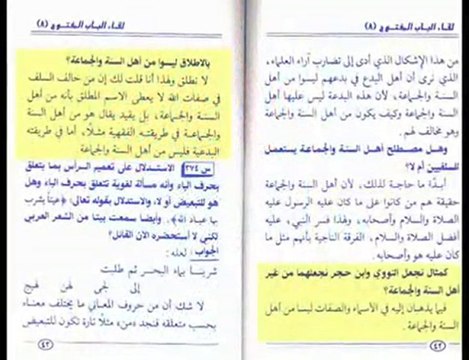 لقاء الباب المفتوح (٨)
من هذا الإشكال الذي أدى إلى تضارب آراء العلماء،
الذي نرى أن أهل البدع في بدعهم ليسوا من أهل
السنة والجماعة، لأن هذه البدعة ليس عليها أهل
السنة والجماعة وكيف يكون من أهل السنة والجماعة
وهو مخالف لهم.
وهل مصطلح أهل السنة والجماعة يستعمل
للسلفيين أم لا؟
أبدًا ما حاجة لذلك، لأن أهل السنة والجماعة
حقيقة هم من كانوا على ما كان عليه الرسول عليه
الصلاة والسلام وأصحابه، ولهذا فسر النبي، عليه
أفضل الصلاة والسلام، الفرقة الناجية بأنهم مثل ما
كان عليه هو وأصحابه.
كمثال نجعل النووي وابن حجر نجعلهما من غير
أهل السنة والجماعة؟
فيما يذهبان إليه في الأسماء والصفات ليسا من أهل
السنة والجماعة.
٤٢
لقاء الباب المفتوح (٨)
بالإطلاق ليسوا من أهل السنة والجماعة؟
لا نطلق ولهذا أنا قلت لك إن من خالف السلف
في صفات الله لا يعطى الاسم المطلق بأنه من أهل
السنة والجماعة، بل يقيد يقال هو من أهل السنة
والجماعة في طريقته الفقهية مثلًا، أما في طريقته
البدعية فليس من أهل السنة والجماعة
س ٣٧٤ الاستدلال على تعميم الرأس بما يتعلق
بحرف الباء وأنه مسألة لغوية تتعلق بحرف الباء وهل
هو للتبعيض أو لا، والاستدلال بقوله تعالى: ﴿عينًا يشرب
بها عباد الله﴾. وأيضًا سمعت بيتًا من الشعر العربي
لكني لا أستحضره الآن القائل؟
الجواب: لعله:
شربنا بماء البحر ثم طلبت
إلى لجى لهن نهيج
لا شك أن من حروف المعاني ما يختلف معناه
بحسب متعلقه فنجد «من» مثلًا تارة تكون للتبعيض
٤٣